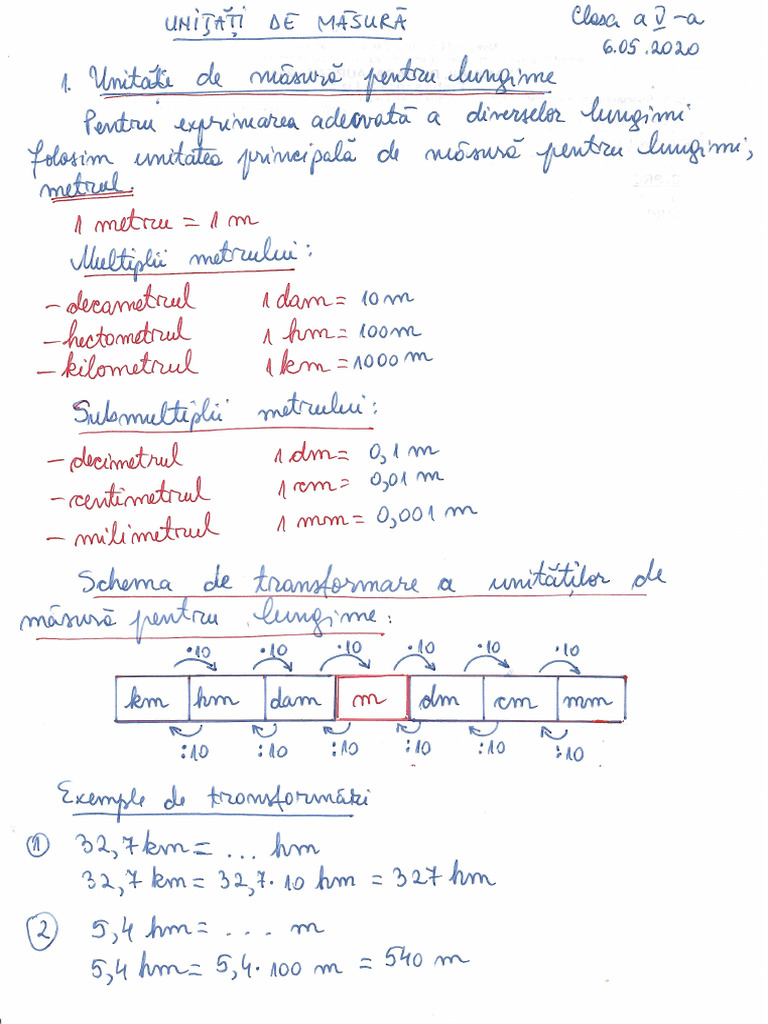 UNITĂŢI DE MĂSURĂ
Clasa a V-a
6.05.2020
1. Unităţi de măsură pentru lungime
Pentru exprimarea adecvată a diverselor lungimi
folosim unitatea principală de măsură pentru lungimi,
metrul.
1 metru = 1 m
Multiplii metrului:
- decametrul 1 dam = 10 m
- hectometrul 1 hm = 100 m
- kilometrul 1 km = 1000 m
Submultiplii metrului:
- decimetrul 1 dm = 0,1 m
- centimetrul 1 cm = 0,01 m
- milimetrul 1 mm = 0,001 m
Schema de transformare a unităţilor de
măsură pentru lungime:
·10 ·10 ·10 ·10 ·10 ·10
km hm dam m dm cm mm
:10 :10 :10 :10 :10 :10
Exemple de transformări
1 32,7 km = ... hm
32,7 km = 32,7 · 10 hm = 327 hm
2 5,4 hm = . . . m
5,4 hm = 5,4 · 100 m = 540 m